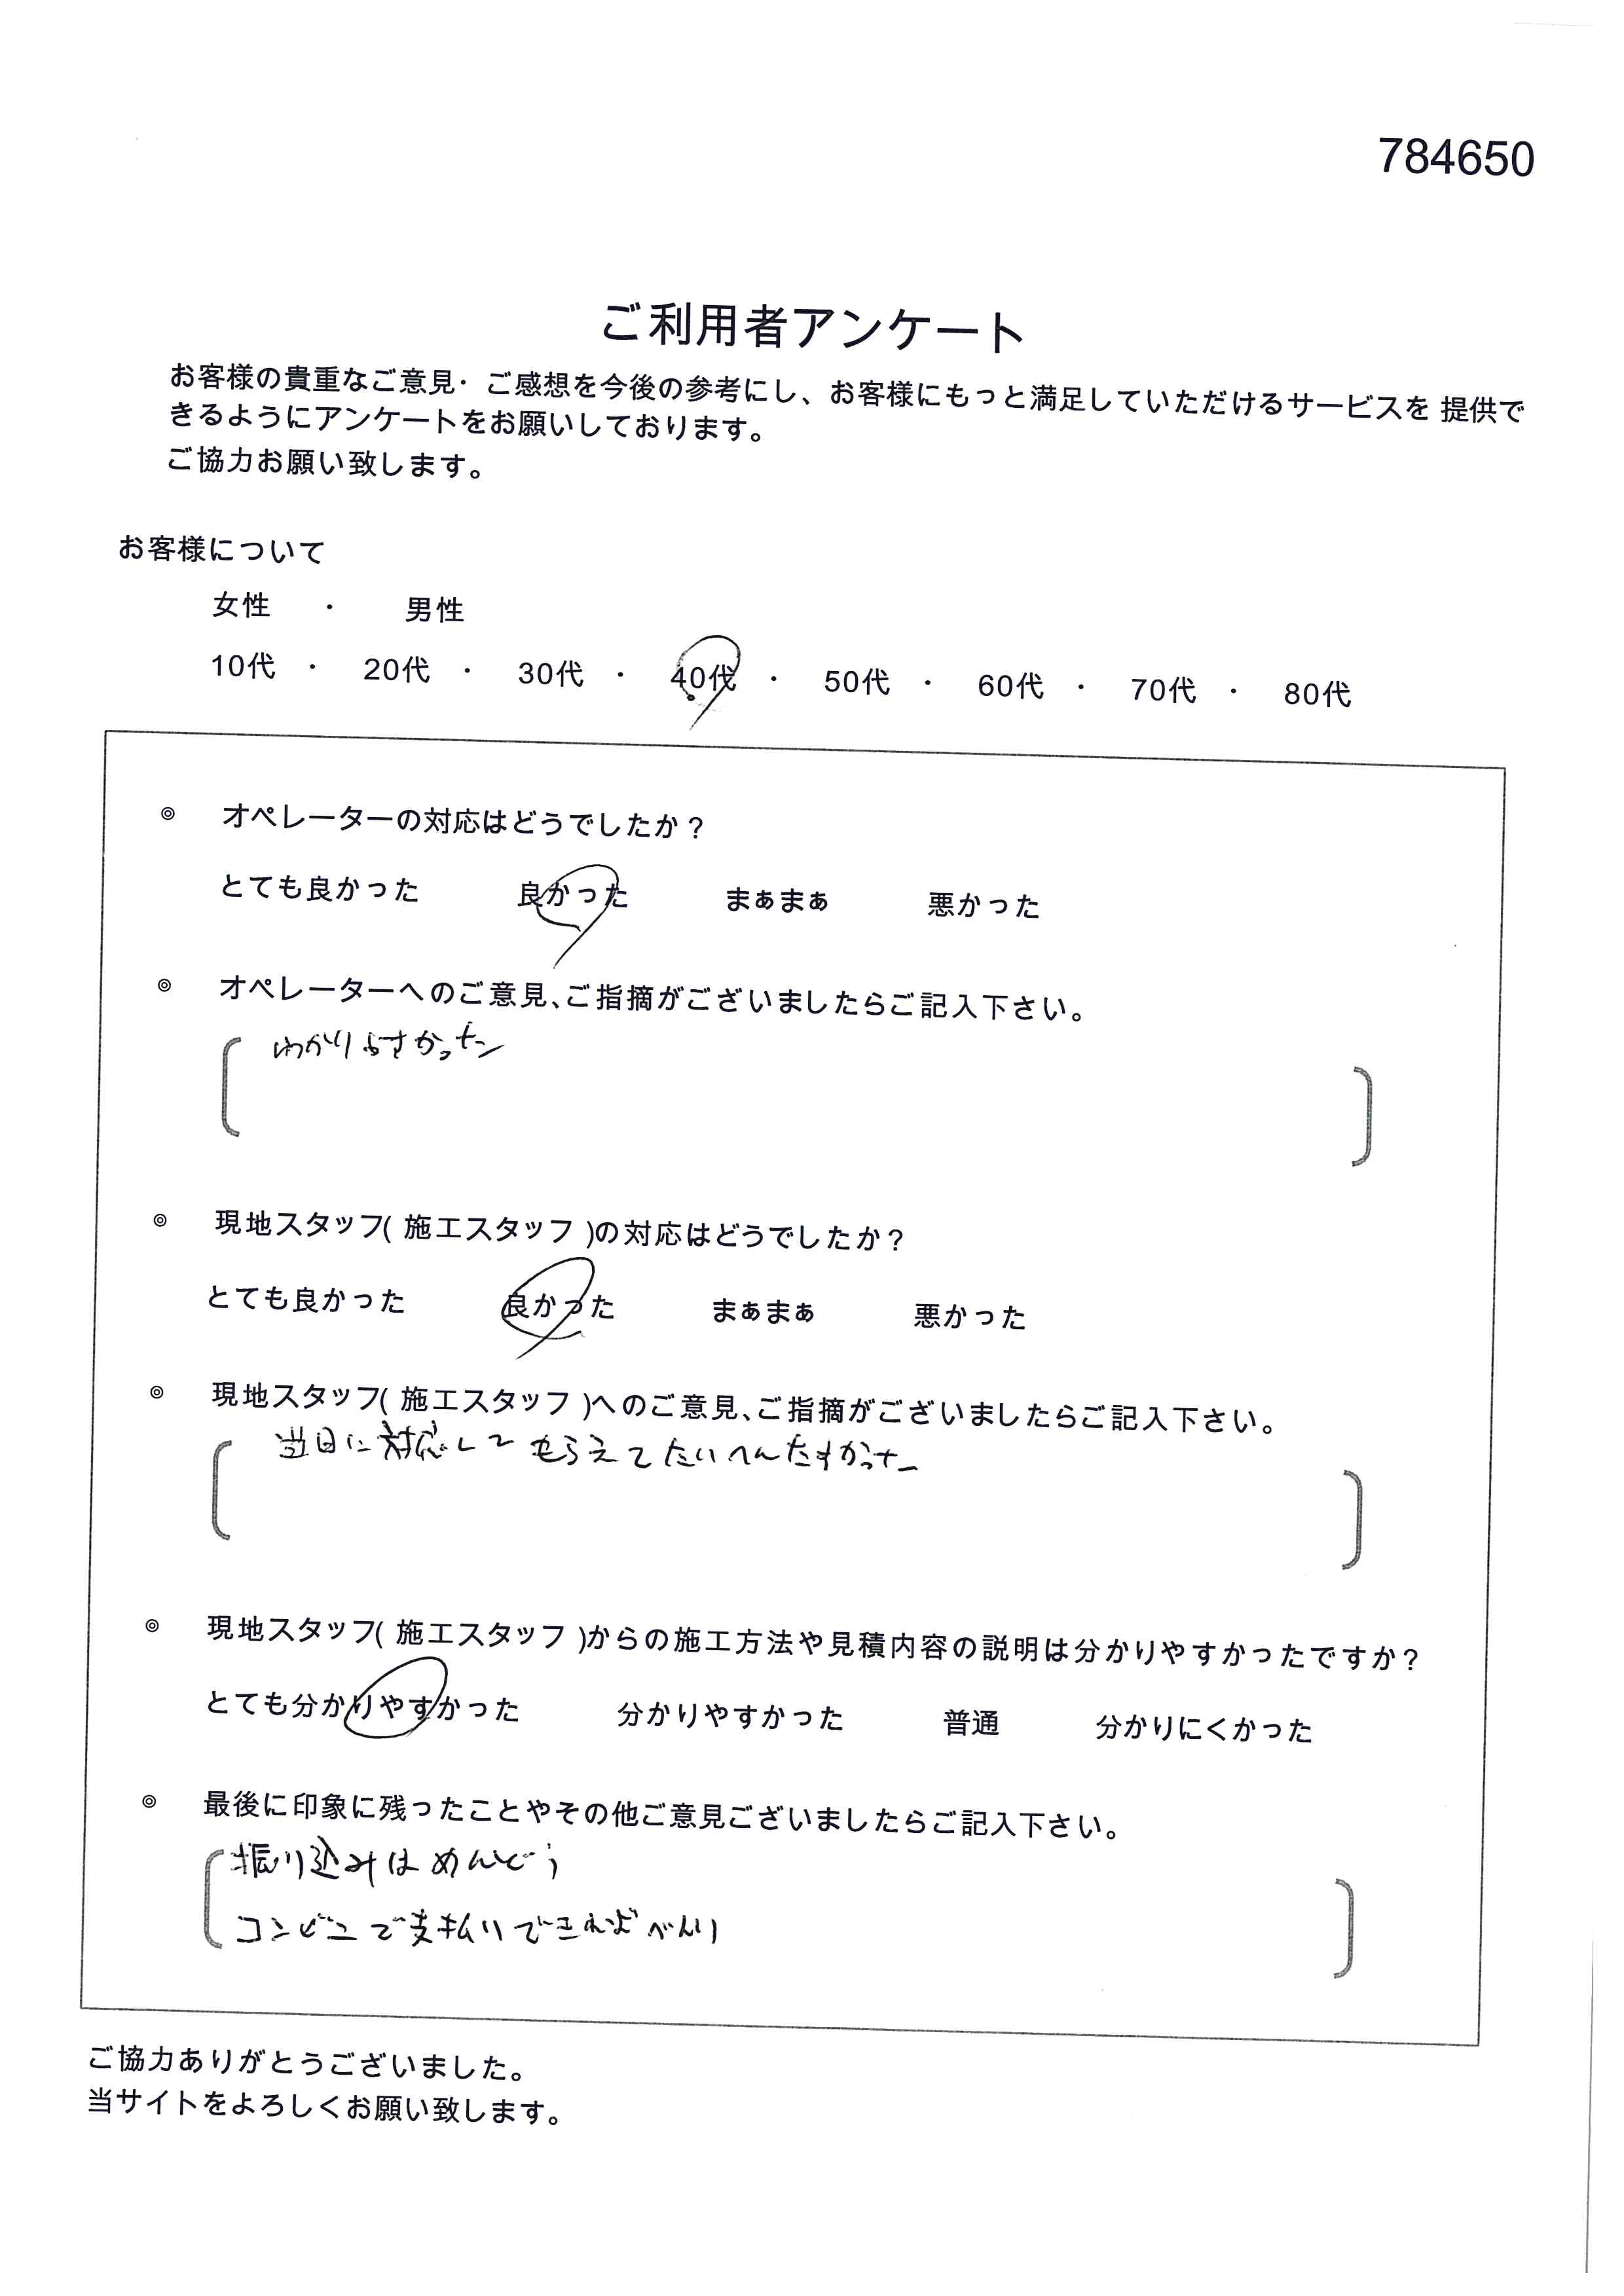 784650
ご利用者アンケート
お客様の貴重なご意見・ご感想を今後の参考にし、お客様にもっと満足していただけるサービスを 提供で
きるようにアンケートをお願いしております。
ご協力お願い致します。
お客様について
女性 ・ 男性
10代 ・ 20代 ・ 30代 ・ 40代 ・ 50代 ・ 60代 ・ 70代 ・ 80代
◎ オペレーターの対応はどうでしたか？
とても良かった 良かった まぁまぁ 悪かった
◎ オペレーターへのご意見、ご指摘がございましたらご記入下さい。
わかりやすかった
◎ 現地スタッフ( 施工スタッフ )の対応はどうでしたか？
とても良かった 良かった まぁまぁ 悪かった
◎ 現地スタッフ( 施工スタッフ )へのご意見、ご指摘がございましたらご記入下さい。
当日に対応してもらえてたいへんたすかった
◎ 現地スタッフ( 施工スタッフ )からの施工方法や見積内容の説明は分かりやすかったですか？
とても分かりやすかった 分かりやすかった 普通 分かりにくかった
◎ 最後に印象に残ったことやその他ご意見ございましたらご記入下さい。
振り込みはめんどう
コンビニで支払いできればべんり
ご協力ありがとうございました。
当サイトをよろしくお願い致します。